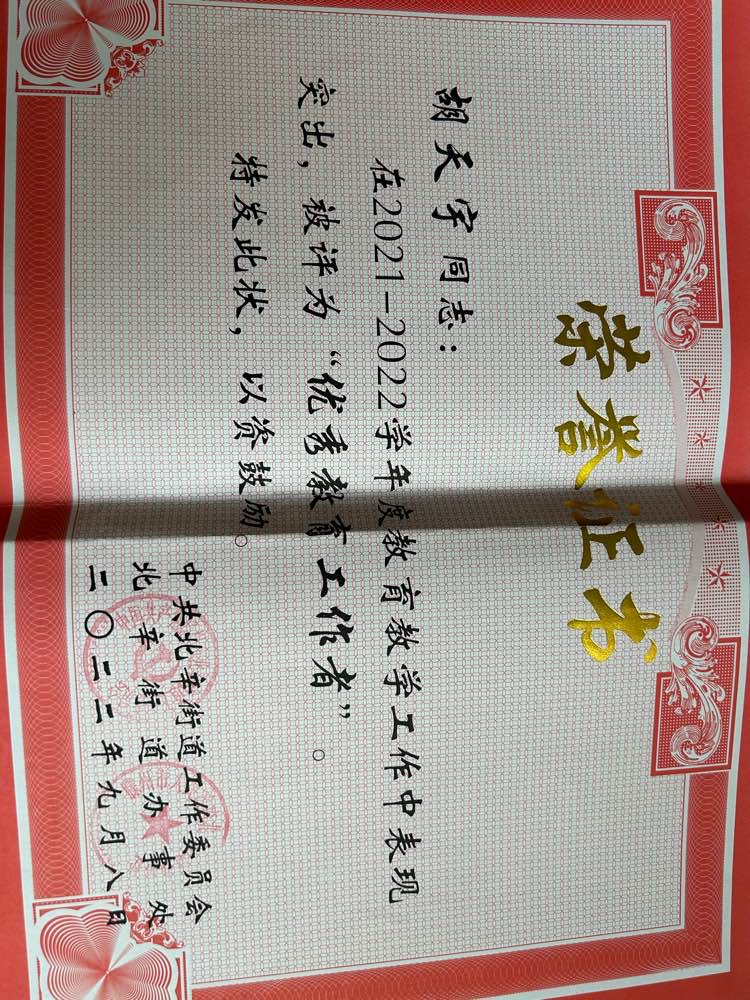 荣誉证书
胡天宇同志：
在2021-2022学年度教育教学工作中表现
突出，被评为“优秀教育工作者”。
特发此状，以资鼓励。
中共北辛街道工作委员会
北辛街道办事处
二〇二二年九月八日